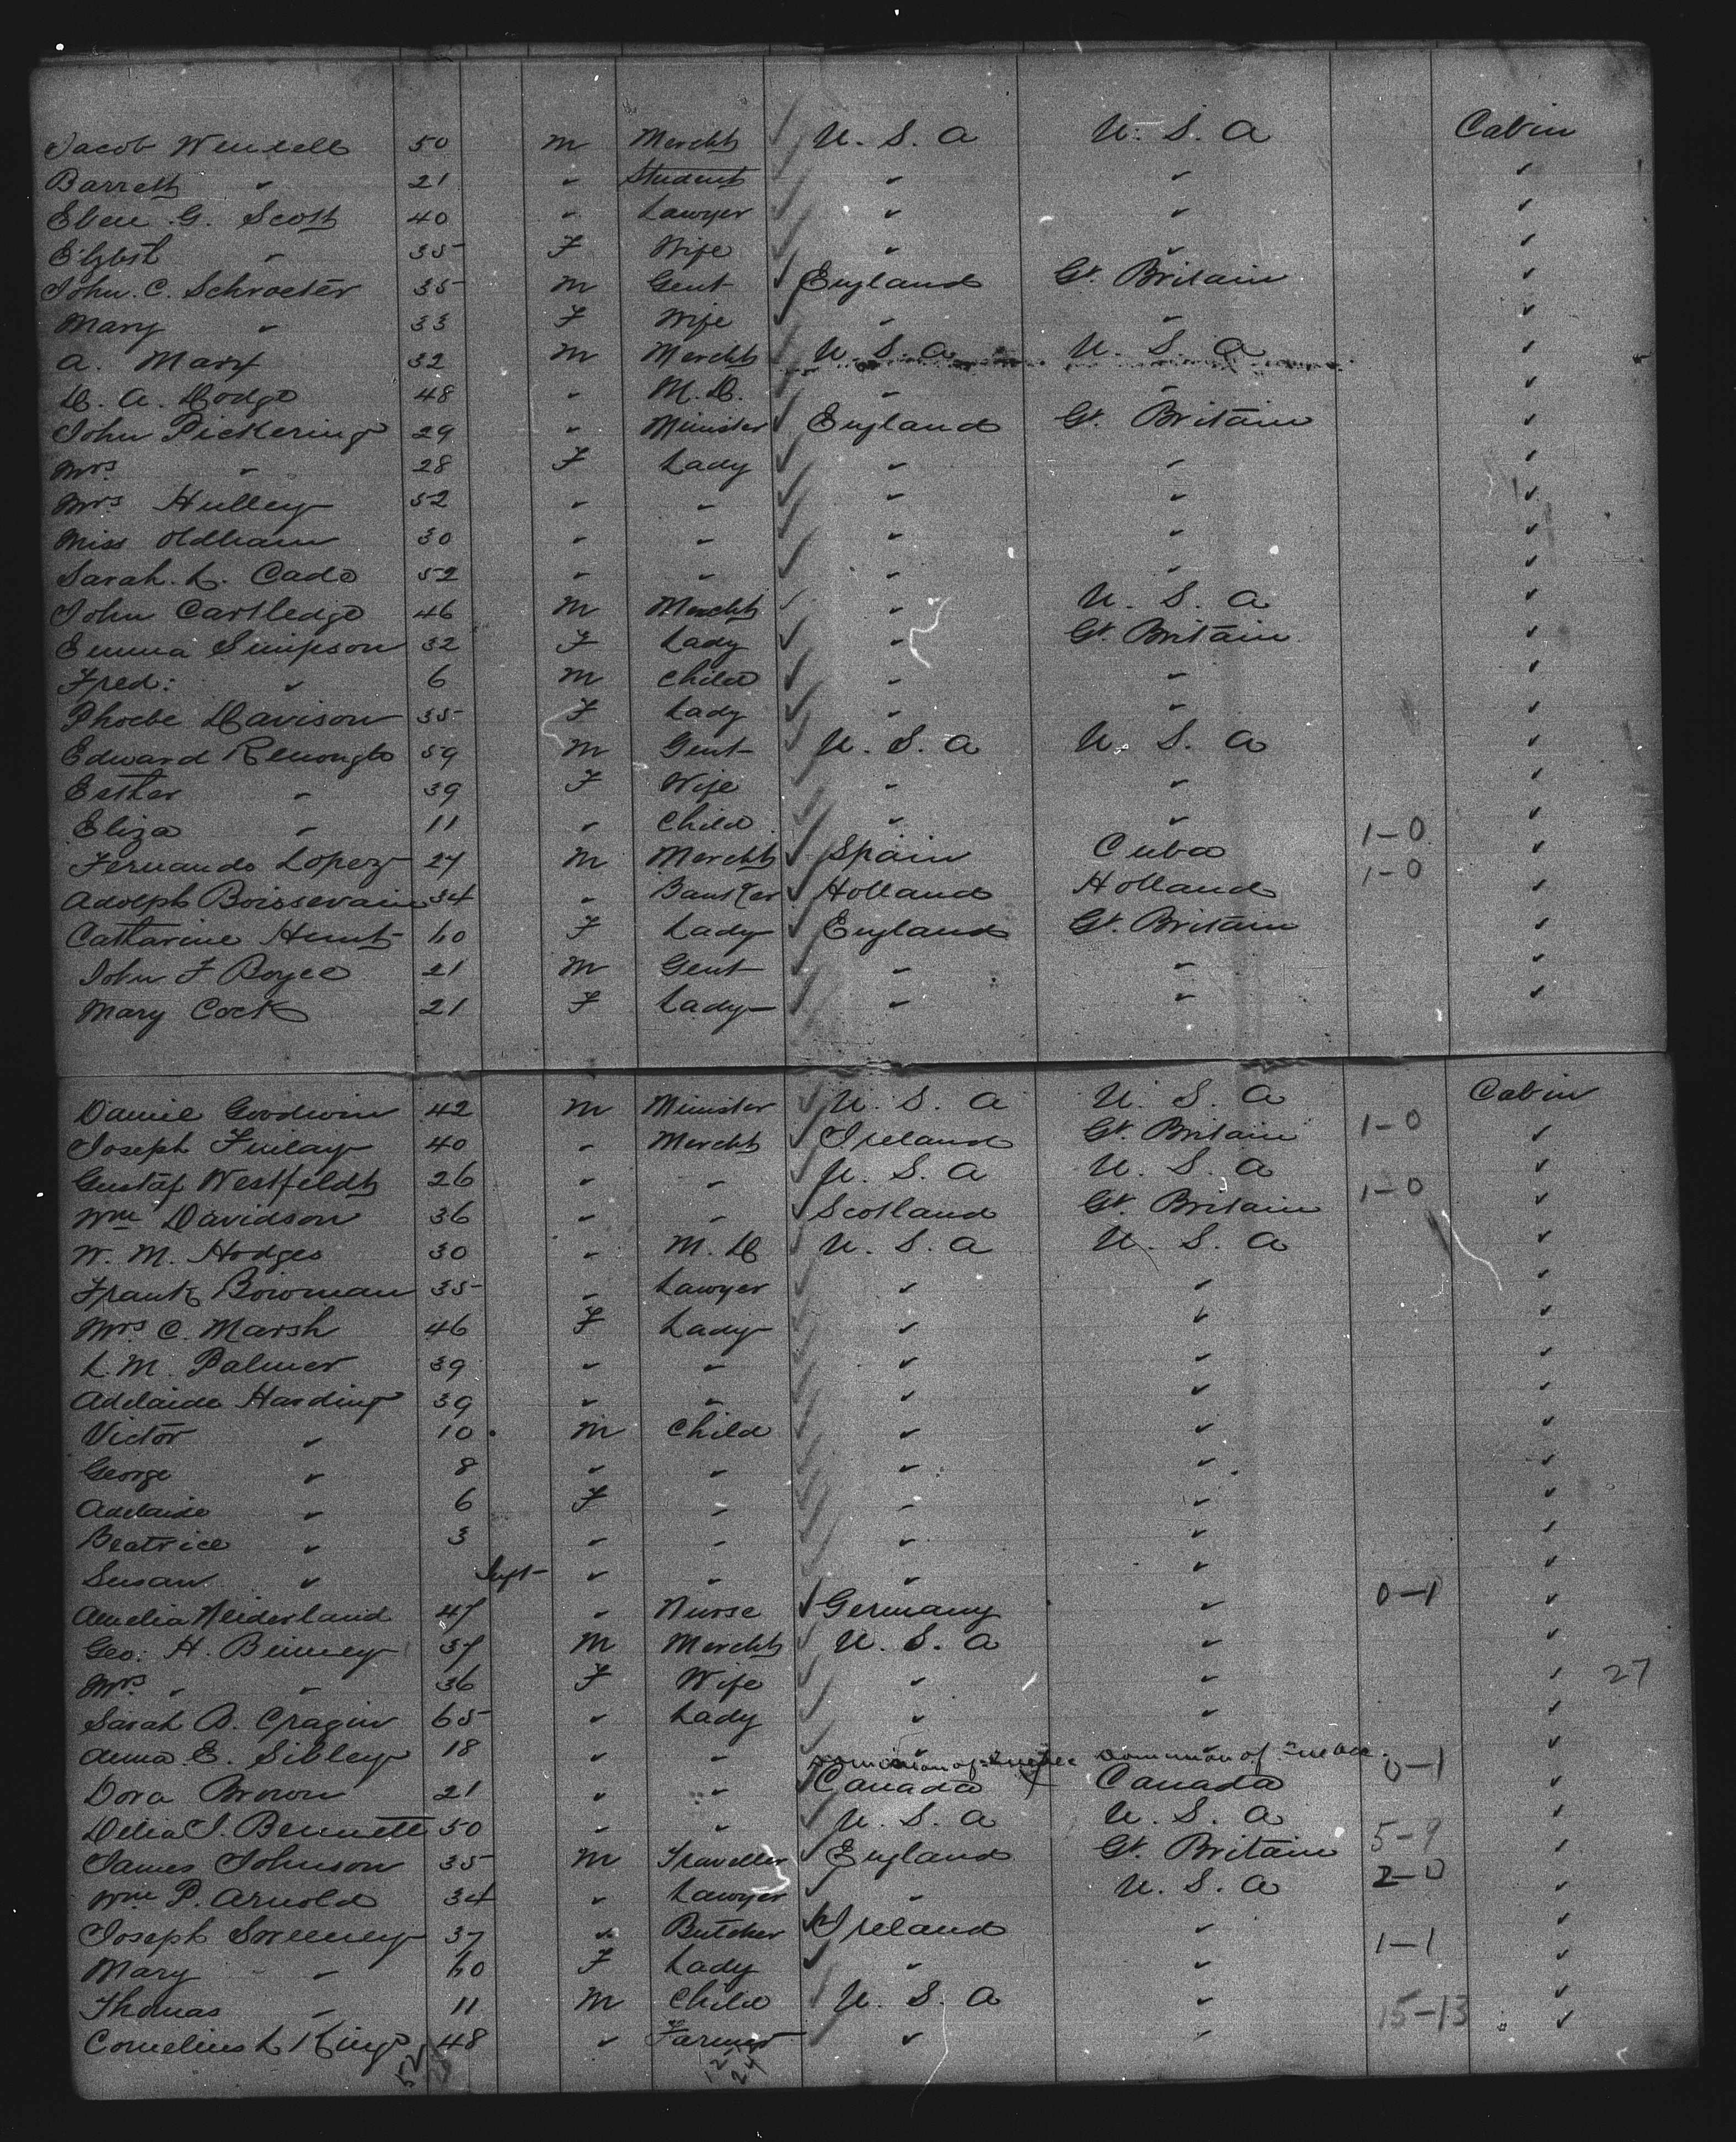 Jacob Wendell 50 M Mercht U. S. A U. S. A Cabin
Barrett " 21 " Student " " "
Eben G. Scott 40 " Lawyer " " "
Elzbet " 35 F Wife " " "
John. C. Schroeter 35 M Gent England Gt. Britain "
Mary " 33 F Wife " " "
A. Marx 32 M Mercht U. S. A U. S. A "
D. A. Dodge 48 " M. D. " " "
John Pickering 29 " Minister England Gt. Britain "
Mrs. " 28 F Lady " " "
Mrs Hulley 52 " " " " "
Miss Oldham 30 " " " " "
Sarah. L. Cade 52 " " " " "
John Cartledge 46 M Mercht " U. S. A "
Emma Simpson 32 F Lady " Gt. Britain "
Fred: " 6 M Child " " "
Phoebe Davison 35 F Lady " " "
Edward 59 M Gent U. S. A U. S. A "
Esther " 39 F Wife " " "
Eliza " 11 " Child " " "
Fernando Lopez 27 M Mercht Spain Cuba 1-0 "
Adolph Boissevain 34 " Banker Holland Holland 1-0 "
Catharine Hunt 60 F Lady England Gt. Britain "
John F Boyce 21 M Gent " " "
Mary Cock 21 F Lady " " "
Daniel Goodwin 42 M Minister U. S. A U. S. A Cabin
Joseph Finlay 40 " Mercht Ireland Gt. Britain 1-0 "
Gustaf Westfeldt 26 " " U. S. A U. S. A "
Wm Davidson 36 " " Scotland Gt. Britain 1-0 "
W. M. Hodges 30 " M. D U. S. A U. S. A "
Frank Bowman 35 " Lawyer " " "
Mrs C. Marsh 46 F Lady " " "
L. M. Palmer 39 " " " " "
Adelaide Harding 39 " " " " "
Victor " 10 M Child " " "
George " 8 " " " " "
Adelaide " 6 F " " " "
Beatrice " 3 " " " " "
Susan " Inft " " " " "
Amelia Neiderland 47 " Nurse Germany " 0-1 "
Geo: H. Binney 37 M Mercht U. S. A " "
Mrs. " " 36 F Wife " " " 27
Sarah B. Cragin 65 " Lady " " "
Anna E. Sibley 18 " " " " "
Dominion of Quebec Dominion of Quebec
Dora Brown 21 " " Canada Canada 0-1 "
Delia J. Bennett 50 " " U. S. A U. S. A "
James Johnson 35 M Traveller England Gt. Britain 5-9 "
Wm P. Arnold 34 " Lawyer " U. S. A 2-0 "
Joseph Sweeney 37 " Butcher Ireland " "
Mary " 60 F Lady " " 1-1 "
Thomas " 11 M Child U. S. A " "
Cornelius L King 48 " Farmer " " 15-13 "
52 12 24